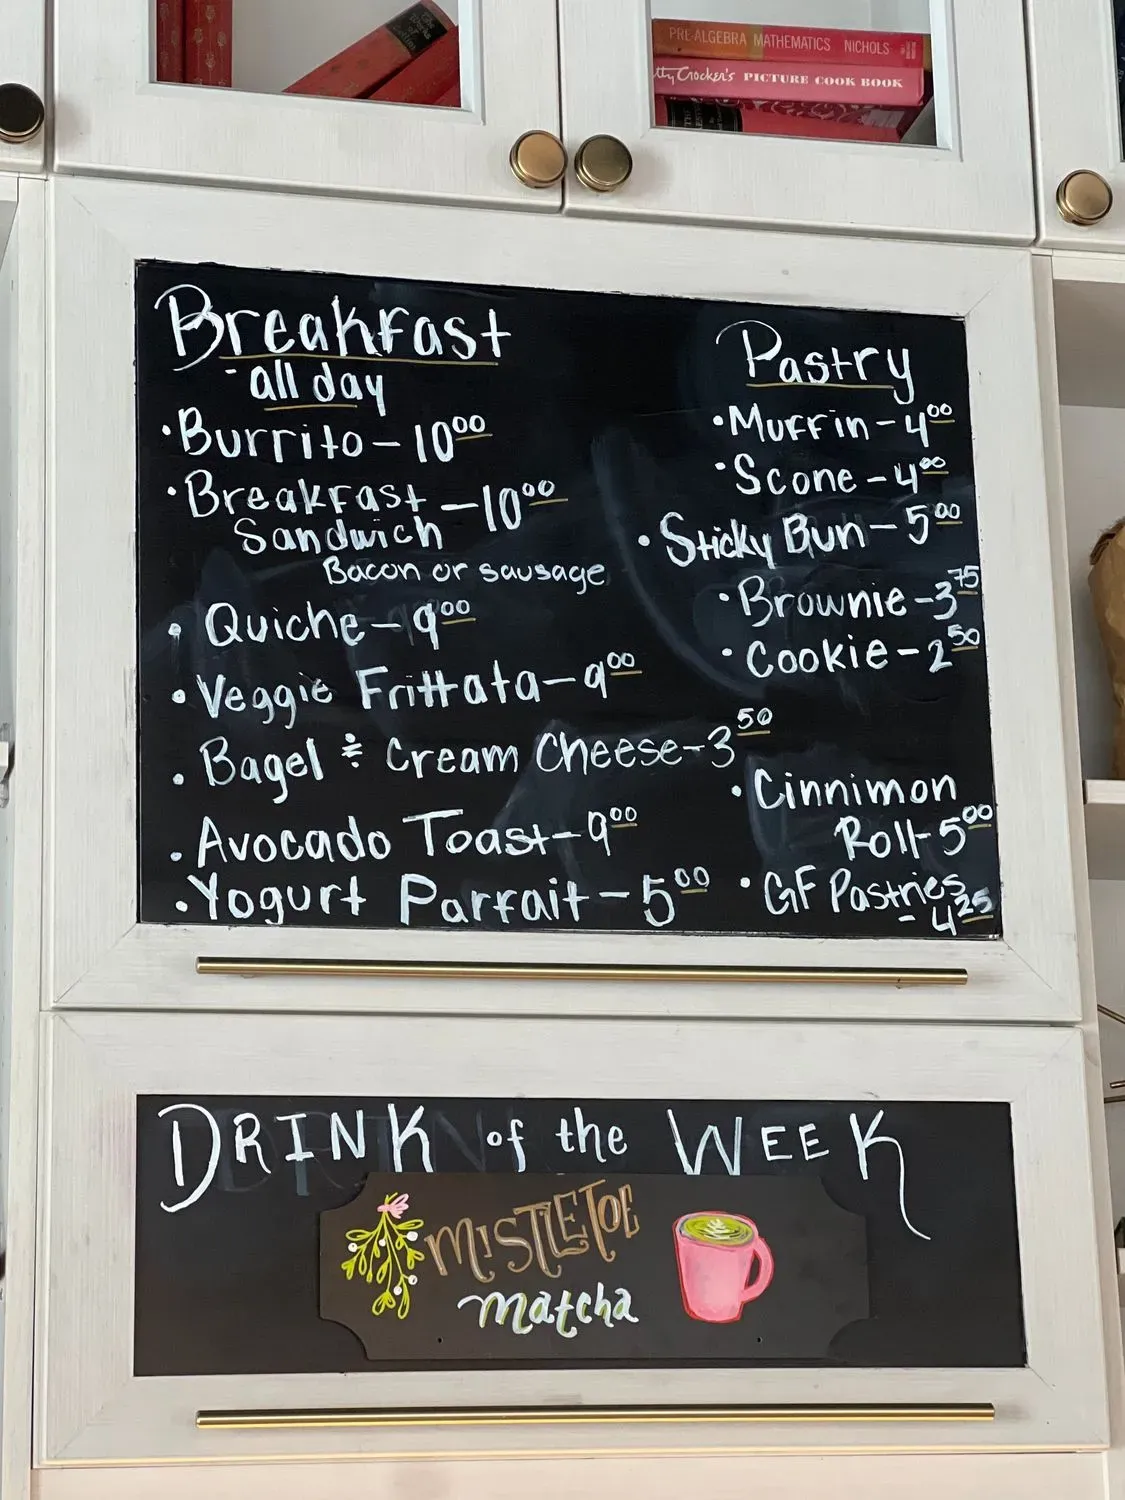 PRE-ALGEBRA MATHEMATICS NICHOLS
tty Crocker's PICTURE COOK BOOK
Breakfast
- all day
• Burrito – 10⁰⁰
• Breakfast – 10⁰⁰
Sandwich
Bacon or sausage
• Quiche – 9⁰⁰
• Veggie Frittata – 9⁰⁰
• Bagel & Cream Cheese – 3⁵⁰
• Avocado Toast – 9⁰⁰
• Yogurt Parfait – 5⁰⁰
Pastry
• Muffin – 4⁰⁰
• Scone – 4⁰⁰
• Sticky Bun – 5⁰⁰
• Brownie – 3⁷⁵
• Cookie – 2⁵⁰
• Cinnimon
Roll – 5⁰⁰
• GF Pastries
– 4²⁵
DRINK of the WEEK
MISTLETOE
matcha